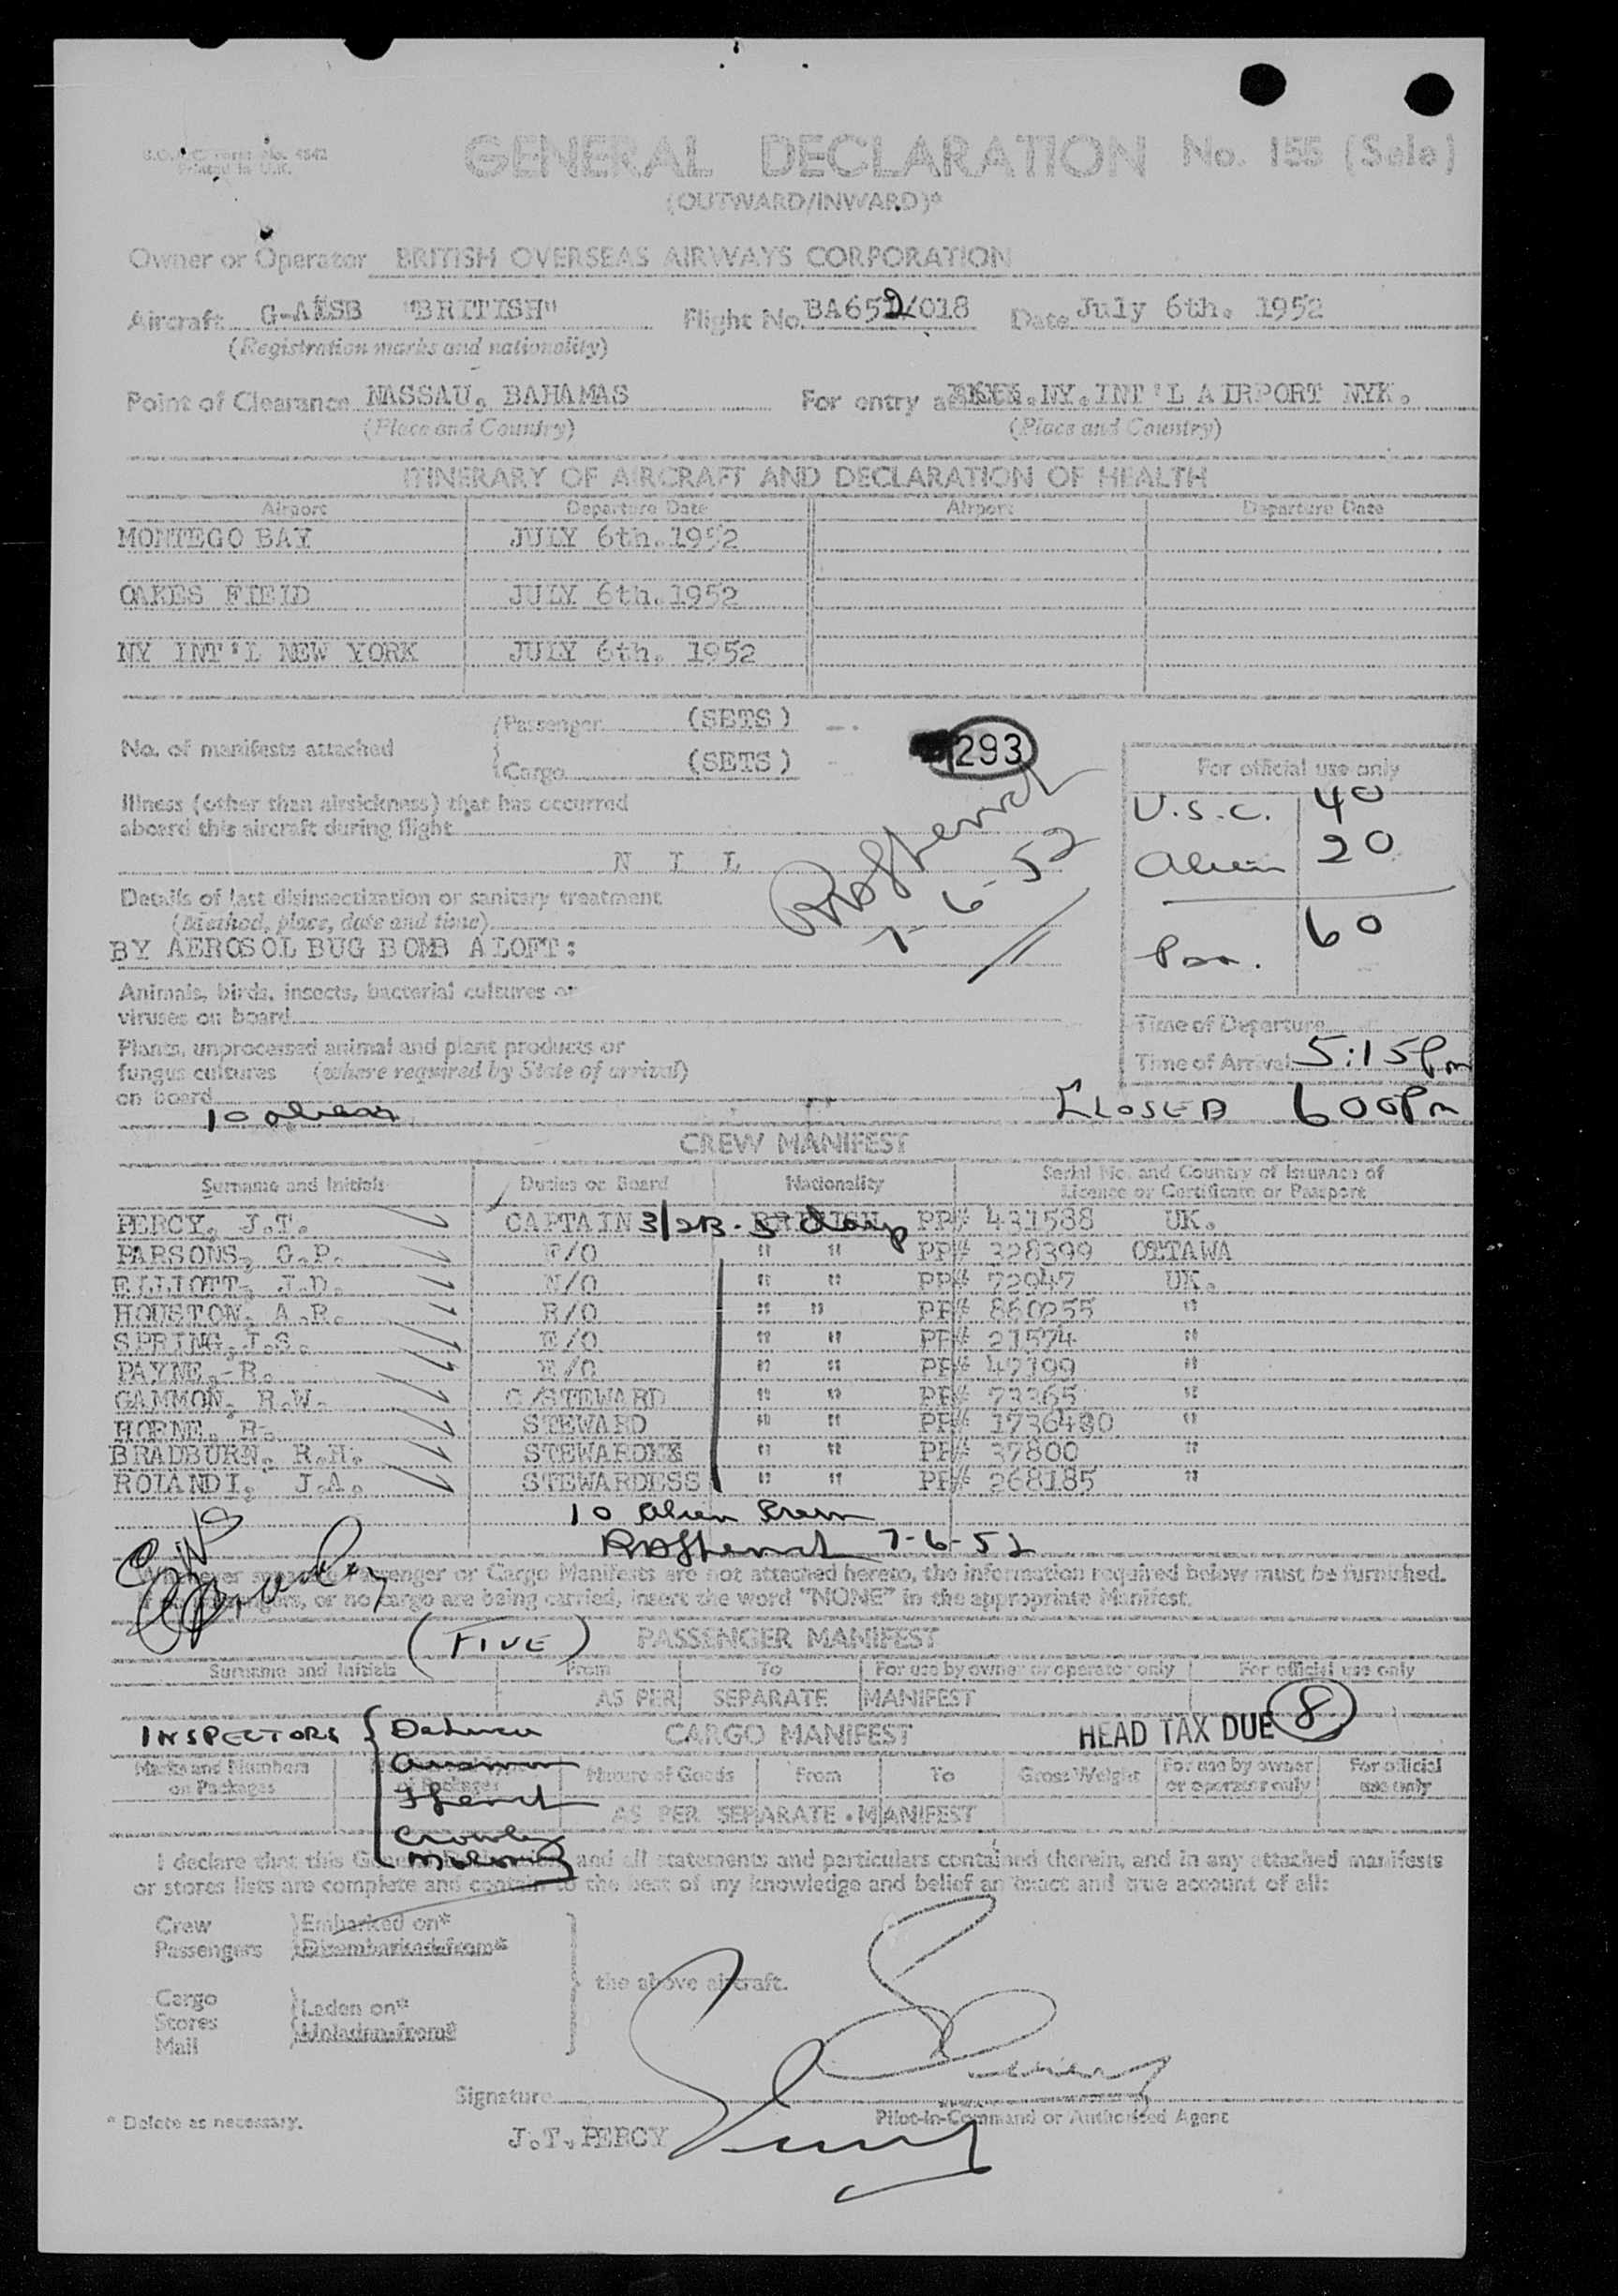 B.O.A.C. Form No. 4642
Printed in U.K.
GENERAL DECLARATION No. 155 (Sele)
(OUTWARD/INWARD)*
Owner or Operator BRITISH OVERSEAS AIRWAYS CORPORATION
Aircraft "BRITISH" Flight No. BA652/018 Date July 6th. 1952
(Registration marks and nationality)
Point of Clearance NASSAU, BAHAMAS For entry at NY.INT'L AIRPORT NYK.
(Place and Country) (Place and Country)
ITINERARY OF AIRCRAFT AND DECLARATION OF HEALTH
Airport Departure Date Airport Departure Date
MONTEGO BAY JULY 6th.1952
OAKES FIELD JULY 6th.1952
NY INT'L NEW YORK JULY 6th. 1952
No. of manifests attached
Passenger (SETS)
Cargo (SETS)
293
For official use only
U.S.C. 40
Alien 20
60
Pax.
Illness (other than airsickness) that has occurred
aboard this aircraft during flight
N I L
7-6-52
Details of last disinsectization or sanitary treatment
(Method, place, date and time)
BY AEROSOL BUG BOMB ALOFT:
Animals, birds, insects, bacterial cultures or
viruses on board
Time of Departure
Plants, unprocessed animal and plant products or
fungus cultures (where required by State of arrival)
Time of Arrival 5:15Pm
on board
10 aliens
CLOSED 600Pm
CREW MANIFEST
Surname and Initials Duties on Board Nationality Serial No. and Country of Issuance of
Licence or Certificate or Passport
PERCY, J.T. CAPTAIN 3/2B. BRITISH PP# 431588 UK.
PARSONS, G.P. F/O " " PP# 328399 OTTAWA
ELLIOTT, J.D. N/O " " PP# 72947 UK.
HOUSTON, A.R. R/O " " PP# 860255 "
SPRING, J.S. E/O " " PP# 21574 "
PAYNE, R. E/O " " PP# 47199 "
GAMMON, R.W. C/STEWARD " " PP# 73365 "
HORNE, R. STEWARD " " PP# 1736480 "
BRADBURN, R.H. STEWARD " " PP# 37800 "
ROLANDI, J.A. STEWARDESS " " PP# 268185 "
10 Alien Crew
7-6-52
Whenever separate Passenger or Cargo Manifests are not attached hereto, the information required below must be furnished.
If no passengers, or no cargo are being carried, insert the word "NONE" in the appropriate Manifest.
(FIVE) PASSENGER MANIFEST
Surname and Initials From To For use by owner or operator only For official use only
AS PER SEPARATE MANIFEST
INSPECTORS CARGO MANIFEST HEAD TAX DUE 8
Marks and Numbers
on Packages
of Packages Nature of Goods From To Gross Weight For use by owner
or operator only For official
use only
AS PER SEPARATE MANIFEST
Crowley
I declare that this General Declaration and all statements and particulars contained therein, and in any attached manifests
or stores lists are complete and contain to the best of my knowledge and belief an exact and true account of all:
Crew Embarked on*
Passengers Disembarked from*
the above aircraft.
Cargo Laden on*
Stores Unladen from*
Mail
Signature
Pilot-in-Command or Authorised Agent
* Delete as necessary.
J.T. PERCY